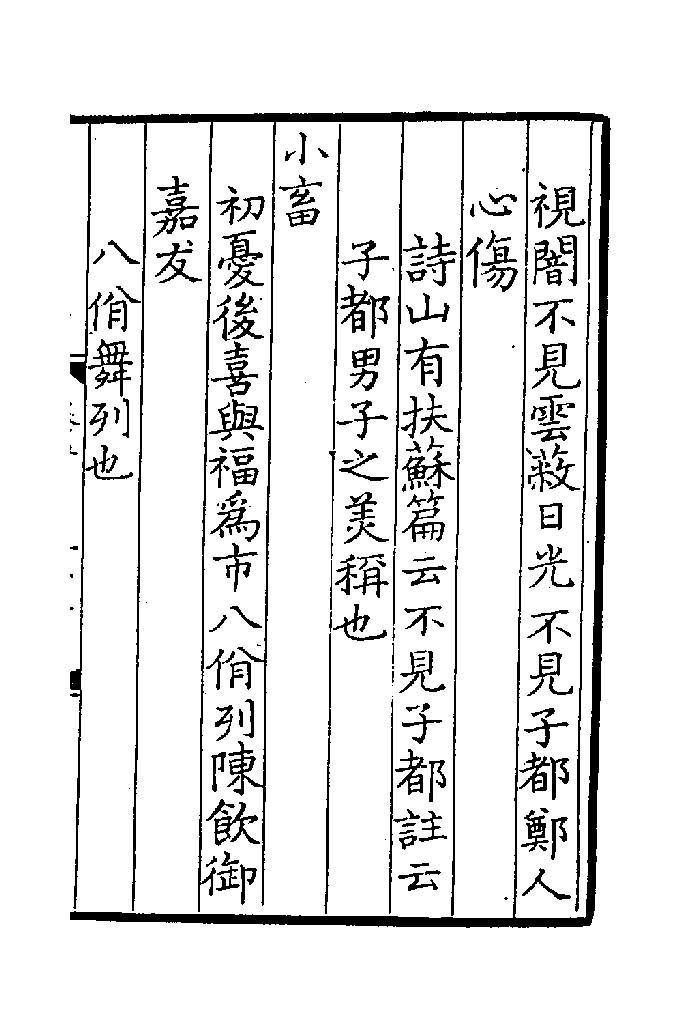 視闇不見雲蔽日光不見子都鄭人
心傷
詩山有扶蘇篇云不見子都註云
子都男子之羙稱也
小畜
初憂後喜與福爲市八佾列陳飲御
嘉友
八佾舞列也